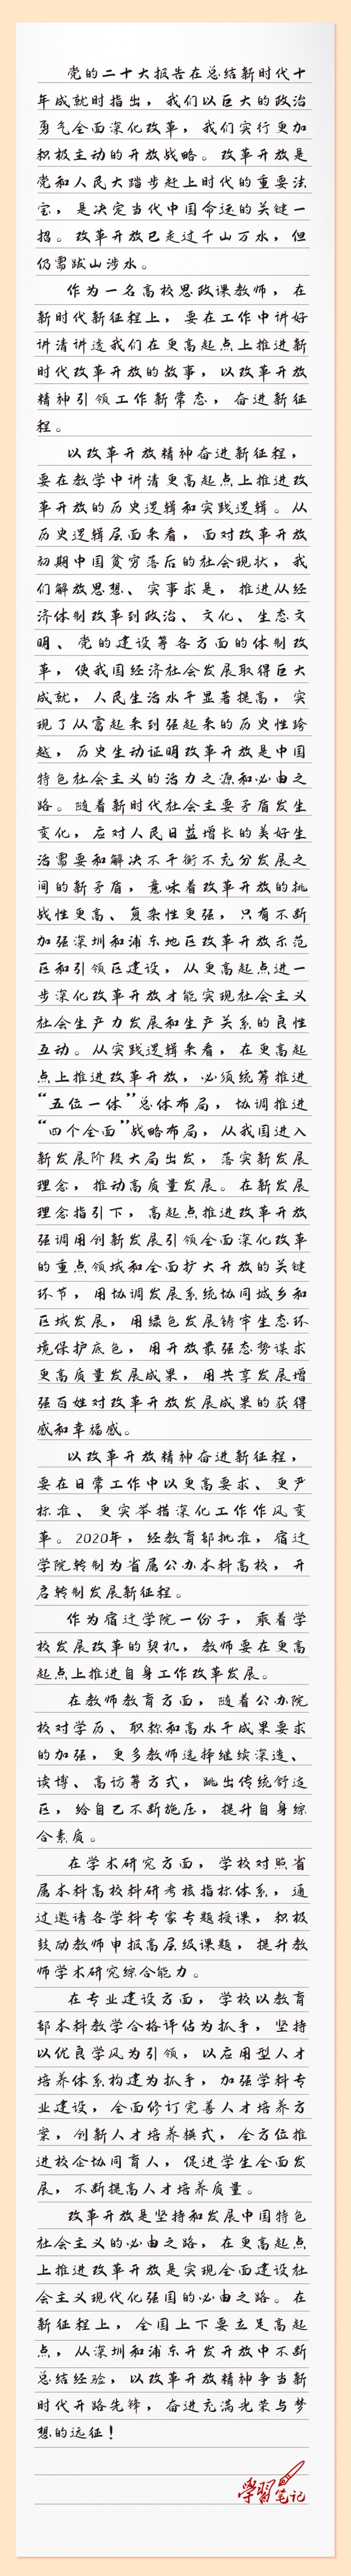 党的二十大报告在总结新时代十
年成就时指出，我们以巨大的政治
勇气全面深化改革，我们实行更加
积极主动的开放战略。改革开放是
党和人民大踏步赶上时代的重要法
宝，是决定当代中国命运的关键一
招。改革开放已走过千山万水，但
仍需跋山涉水。
作为一名高校思政课教师，在
新时代新征程上，要在工作中讲好
讲清讲透我们在更高起点上推进新
时代改革开放的故事，以改革开放
精神引领工作新常态，奋进新征
程。
以改革开放精神奋进新征程，
要在教学中讲清更高起点上推进改
革开放的历史逻辑和实践逻辑。从
历史逻辑层面来看，面对改革开放
初期中国贫穷落后的社会现状，我
们解放思想、实事求是，推进从经
济体制改革到政治、文化、生态文
明、党的建设等各方面的体制改
革，使我国经济社会发展取得巨大
成就，人民生活水平显著提高，实
现了从富起来到强起来的历史性跨
越，历史生动证明改革开放是中国
特色社会主义的活力之源和必由之
路。随着新时代社会主要矛盾发生
变化，应对人民日益增长的美好生
活需要和解决不平衡不充分发展之
间的新矛盾，意味着改革开放的挑
战性更高、复杂性更强，只有不断
加强深圳和浦东地区改革开放示范
区和引领区建设，从更高起点进一
步深化改革开放才能实现社会主义
社会生产力发展和生产关系的良性
互动。从实践逻辑来看，在更高起
点上推进改革开放，必须统筹推进
“五位一体”总体布局，协调推进
“四个全面”战略布局，从我国进入
新发展阶段大局出发，落实新发展
理念，推动高质量发展。在新发展
理念指引下，高起点推进改革开放
强调用创新发展引领全面深化改革
的重点领域和全面扩大开放的关键
环节，用协调发展系统协同城乡和
区域发展，用绿色发展铸牢生态环
境保护底色，用开放最强态势谋求
更高质量发展成果，用共享发展增
强百姓对改革开放发展成果的获得
感和幸福感。
以改革开放精神奋进新征程，
要在日常工作中以更高要求、更严
标准、更实举措深化工作作风变
革。2020年，经教育部批准，宿迁
学院转制为省属公办本科高校，开
启转制发展新征程。
作为宿迁学院一份子，乘着学
校发展改革的契机，教师要在更高
起点上推进自身工作改革发展。
在教师教育方面，随着公办院
校对学历、职称和高水平成果要求
的加强，更多教师选择继续深造、
读博、高访等方式，跳出传统舒适
区，给自己不断施压，提升自身综
合素质。
在学术研究方面，学校对照省
属本科高校科研考核指标体系，通
过邀请各学科专家专题授课，积极
鼓励教师申报高层级课题，提升教
师学术研究综合能力。
在专业建设方面，学校以教育
部本科教学合格评估为抓手，坚持
以优良学风为引领，以应用型人才
培养体系构建为抓手，加强学科专
业建设，全面修订完善人才培养方
案，创新人才培养模式，全方位推
进校企协同育人，促进学生全面发
展，不断提高人才培养质量。
改革开放是坚持和发展中国特色
社会主义的必由之路，在更高起点
上推进改革开放是实现全面建设社
会主义现代化强国的必由之路。在
新征程上，全国上下要立足高起
点，从深圳和浦东开发开放中不断
总结经验，以改革开放精神争当新
时代开路先锋，奋进充满光荣与梦
想的远征！
學習笔记